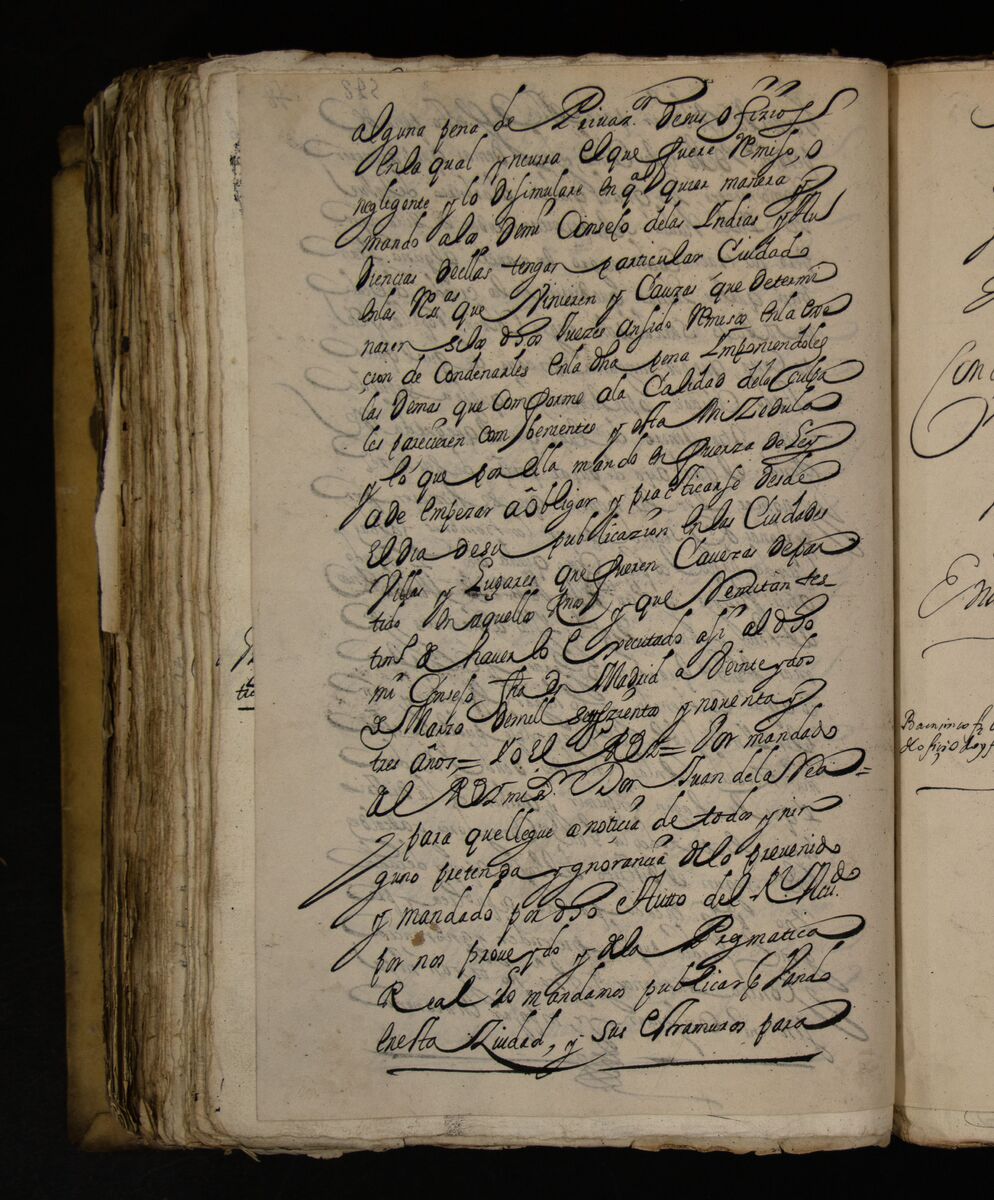 alguna pena de Privaz.on de sus ofizios
en la qual yncurra el que fuere Remiso, o
negligente y lo disimulare en ql quier manera y
mando a los de mi Consejo de las Indias y Au
diencias dellas tengan particular Cuidado
en las Rs.as que Vinieren y Cauzas que determi
naren si los dhos Juezes an sido Remisos en la exe
cion de Condenarles en la dha pena Imponiendoles
las demas que comforme a la Calidad de la Culpa
les parecieren combenientes y esta Mi Zedula
y lo que por ella mando en fuerza de Ley
a de empezar a obligar y practicarse desde
el dia de su publicazion en las Ciudades
Villas y Lugares que fueren Cavezas de par
tido en aquellos Rnos y que Remitan tes
tims de haverlo Executado asi al dho
mi Consejo fha en Madrid a Veinte y dos
de Marzo de mill seyszientos y noventa y
tres años = Yo el Rey = Por mandado
al Rey mi s.r Don Juan de la Rea =
y para que llegue a noticia de todos y nin
guno pretenda ygnorancia de lo prevenido
y mandado por dho Auto del Rl Acu.do
por nos proveydo y de la Pragmatica
Real lo mandamos publicar por Vando
en esta Ziudad, y sus Estramuros para